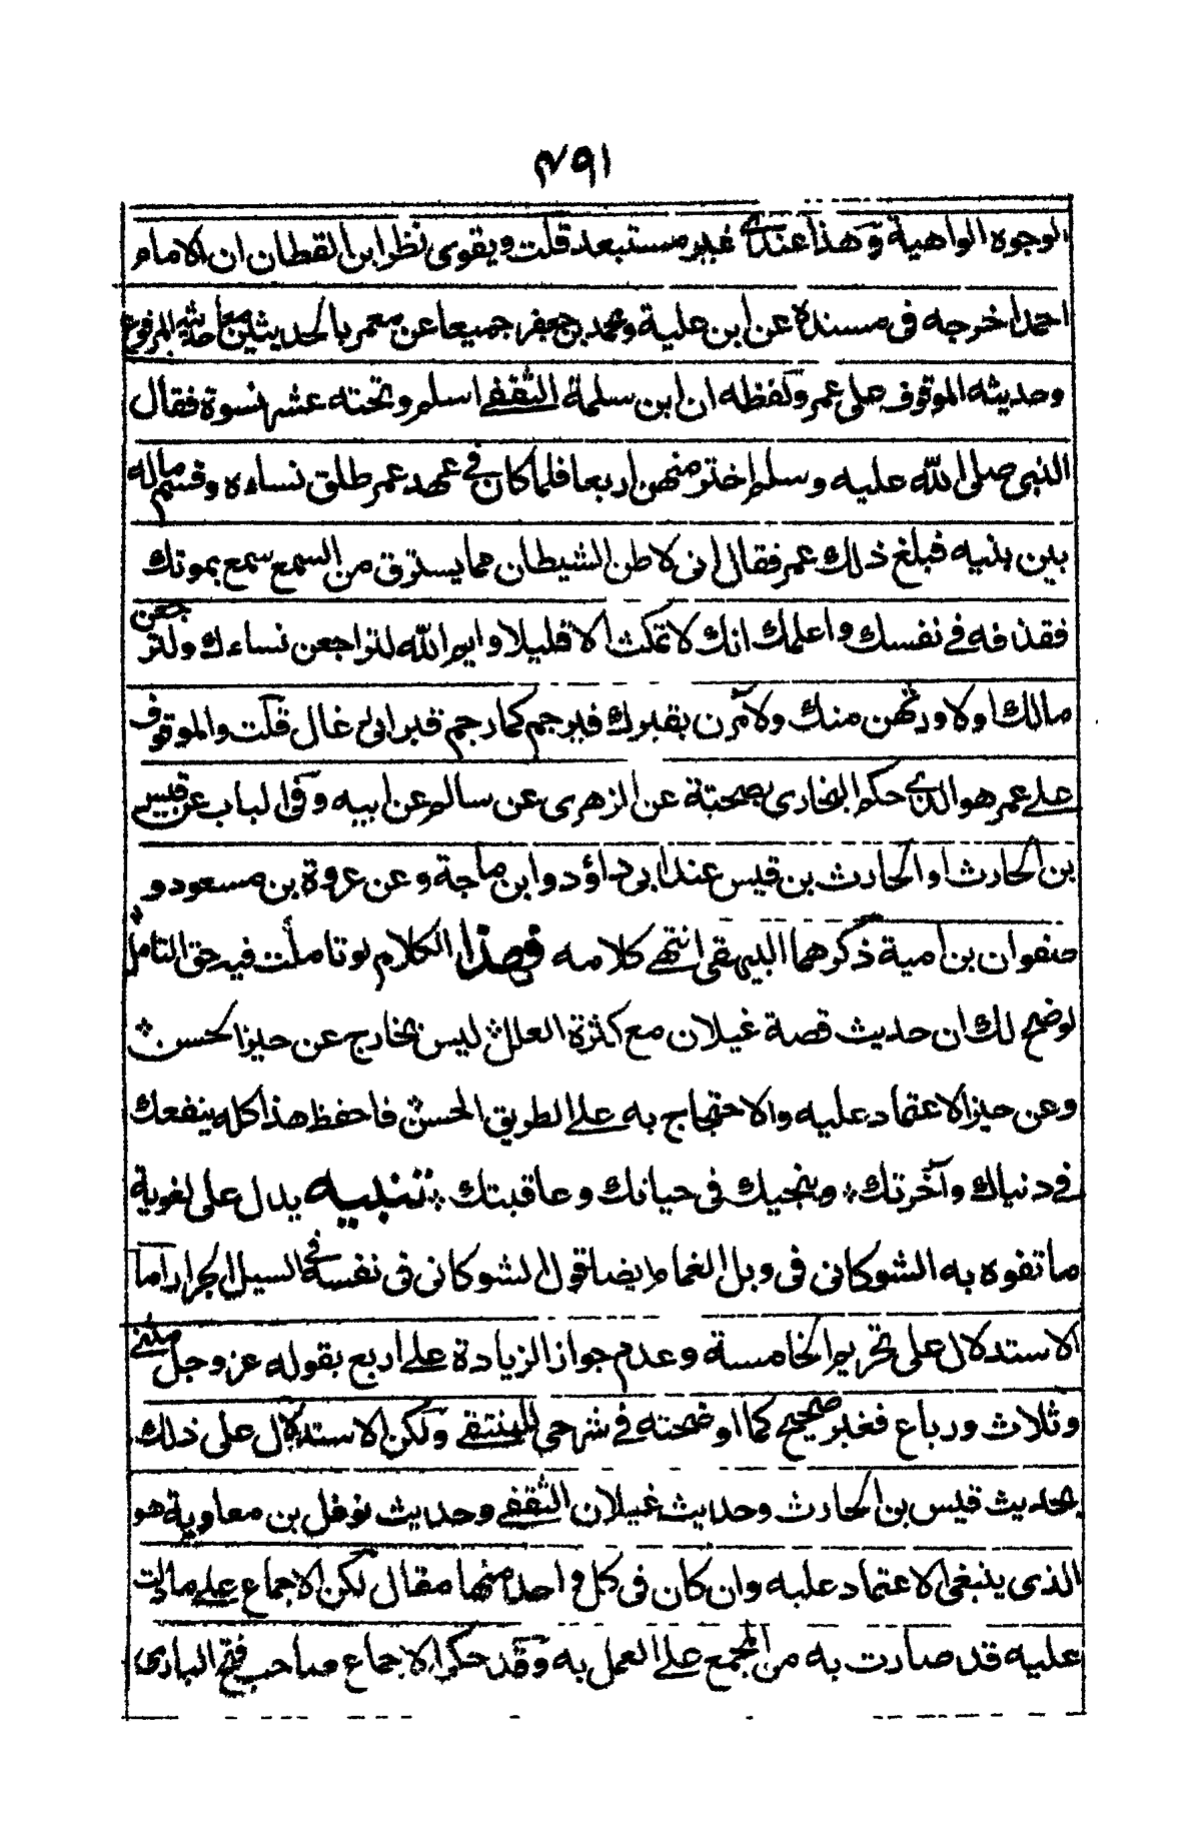 ١٩١
الوجوه الواهية وهذا عندى غير مستبعد قلت ويقوى نظر ابن القطان ان الامام
احمد اخرجه فى مسنده عن ابن علية ومحمد بن جعفر جميعا عن معمر بالحديثين معا حديثه المرفوع
وحديثه الموقوف على عمر ولفظه ان ابن سلمة الثقفے اسلم وتحته عشر نسوة فقال
النبى صلى الله عليه وسلم اختر منهن اربعا فلما كان فے عهد عمر طلق نساءه وقسم ماله
بين بنيه فبلغ ذلك عمر فقال انى لاظن الشيطان مما يسترق من السمع سمع بموتك
فقذفه فے نفسك واعلمك انك لا تمكث الا قليلا وايم الله لتراجعن نساءك ولترجعن
مالك اولاورثهن منك ولآمرن بقبرك فيرجم كما رجم قبر ابى غال قلت والموقوف
علے عمر هو الذى حكم البخارى بصحته عن الزهرى عن سالم عن ابيه وفى الباب عن قيس
بن الحارث او الحارث بن قيس عند ابى داؤد وابن ماجة وعن عروة بن مسعود و
صفوان بن امية ذكرهما البيهقى انتهے كلامه فهذا الكلام لو تاملت فيه حق التامل
لوضح لك ان حديث قصة غيلان مع كثرة العلل ليس بخارج عن حيز الحسن
وعن حيز الاعتماد عليه والاحتجاج به علے الطريق الحسن فاحفظ هذا كله ينفعك
فے دنياك وآخرتك وينجيك فى حياتك وعاقبتك تنبيه يدل على لغوية
ما تفوه به الشوكانى فى وبل الغمام ايضا قول الشوكانى فى نفسه فے السيل الجرار اما
الاستدلال على تحريم الخامسة وعدم جواز الزيادة علے اربع بقوله عز وجل مثنے
وثلاث ورباع فغير صحيح كما اوضحته فے شرحى للمنتقے ولكن الاستدلال على ذلك
بحديث قيس بن الحارث وحديث غيلان الثقفے وحديث نوفل بن معاوية هو
الذى ينبغى الاعتماد عليه وان كان فى كل واحد منها مقال لكن الاجماع علے ما دلت
عليه قد صارت به من المجمع علے العمل به وقد حكى الاجماع صاحب فتح البارى